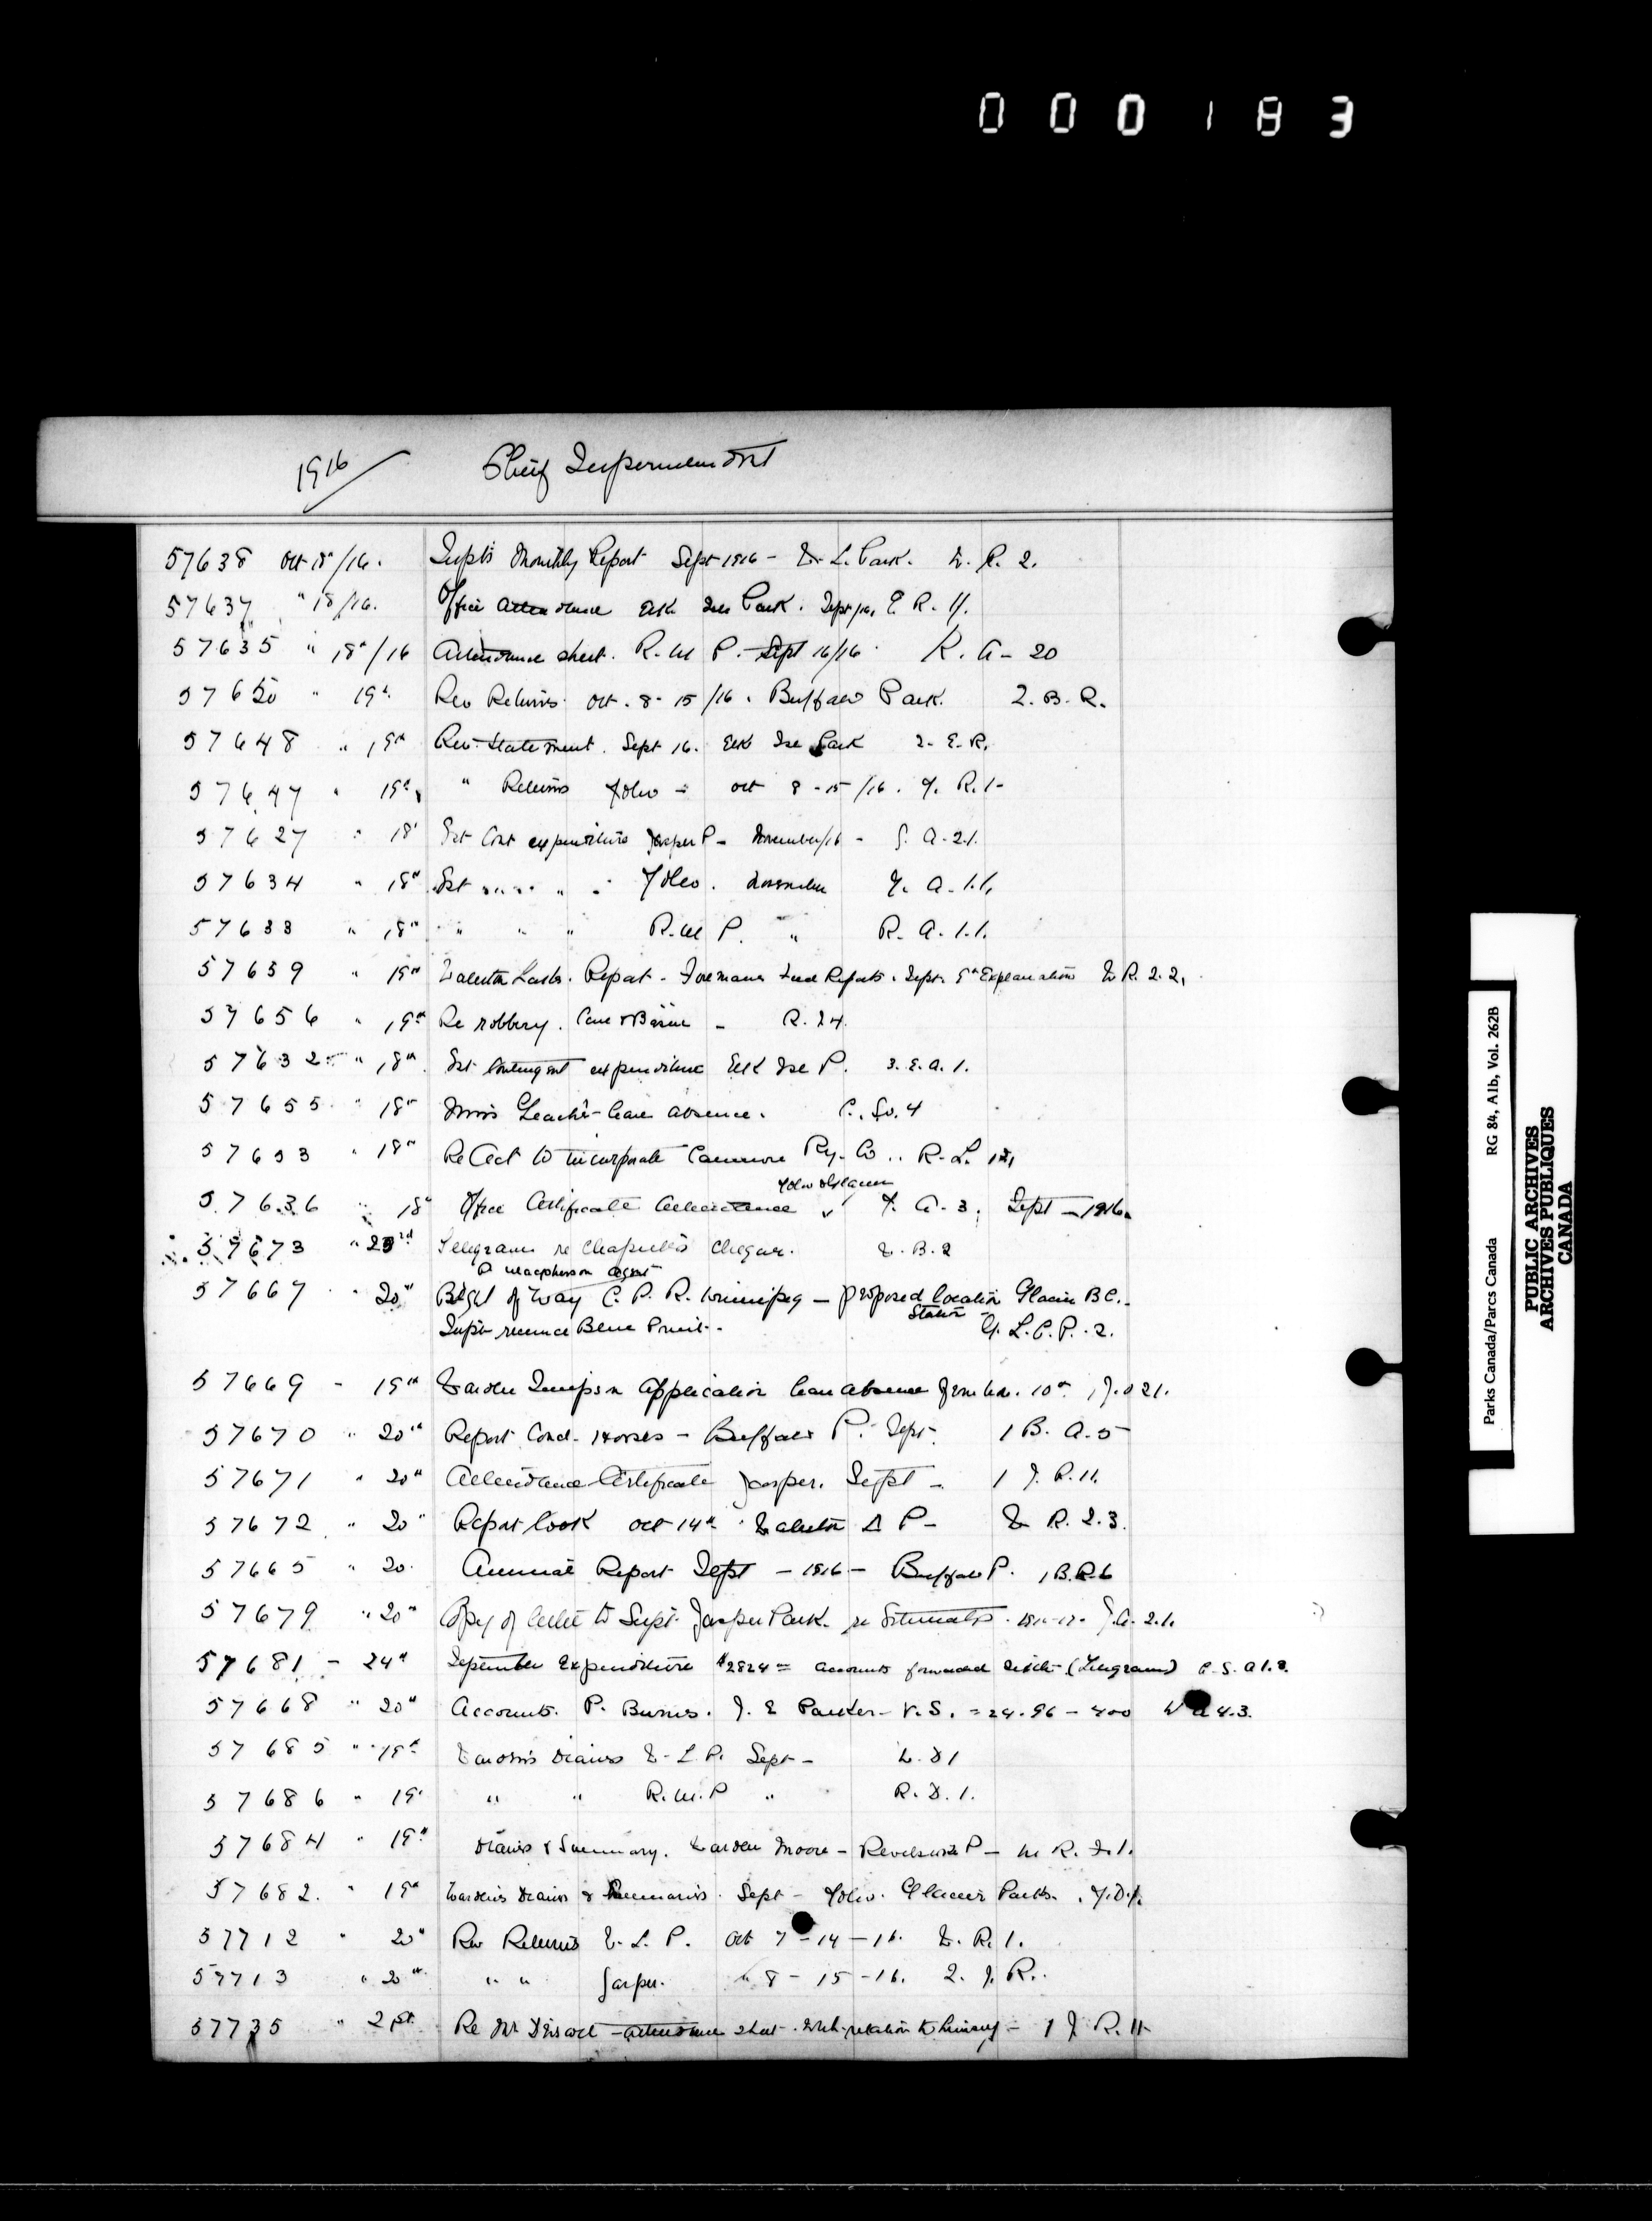 000183
1916 Chief Superintendent
57638 Oct 18th/16. Supt's Monthly Report Sept 1916 - W. L. Park. W. R. 2.
57637 " 18/16. Office Attendance Elk Isle Park. Sept/16, E. R. 11.
57635 " 18th/16 Attendance sheet. R. M P. Sept 16/16 R. A - 20
57650 " 19th Rev Returns Oct. 8-15/16. Buffalo Park. 2. B. R.
57648 " 19th Rev. Statement. Sept 16. Elk Isle Park 2. E. R.
57647 " 19th " Returns Yoho - Oct 8-15/16. Y. R. 1-
57627 " 18th Est Cont expenditure Jasper P - November/16 - J. A. 21.
57634 " 18th Est " " " Yoho. November Y. A. 1.1.
57633 " 18th " " " R. M P. " R. A. 1.1.
57639 " 19th Waterton Lakes. Report - Foremans Report. Sept. 9th Explanation W R. 2. 2,
57656 " 19th Re robbery. Cave & Basin - R. 24.
57632 " 18th Est Contingent expenditure Elk Isle P. 3. E. A. 1.
57655 " 18th Miss leave absence. C. 4
57653 " 18th Re Act to incorporate Canmore Ry. Co .. R. L.
Yoho & Glacier
57636 " 18th Office Certificate Attendance Y. A. 3, Sept - 1916.
57673 " 23rd Telegram re cheque. W. B. 2
P Macpherson Agent
57667 " 20th Right of Way C. P. R. Winnipeg - proposed location Glacier B C. -
Station
Supt Blue Print - G. L. C. P. . 2.
57669 - 19th Warden Simpson application leave absence from Nov. 10th
57670 " 20th Report Cond. Horses - Buffalo P. Sept. 1 B. A. 5
57671 " 20th Attendance Certificate Jasper. Sept - 1 J. R. 11.
57672 " 20th Report Cook Oct 14th Waterton L P - W R. 2. 3.
57665 " 20. Annual Report Sept - 1916 - Buffalo P. 1 B. R. 6
57679 " 20th Copy of letter to Supt. Jasper Park. re Estimates J. A. 2. 1.
57681 - 24th September Expenditure $2824 = accounts forwarded (Telegram)
57668 " 20th Accounts. P. Burns. J. E Parker - V. S. = 24.96 - 400 W A 4.3.
57685 " 19th Warden's Diaries W. L. P. Sept - W. D 1
57686 " 19th " " R. M. P " R. D. 1.
57684 " 19th Diaries & Summary. Warden Moore - Revelstoke P - M R. D. 1.
57682. " 19th Warden's Diaries & Summaries. Sept - Yoho. Glacier Parks. Y. D. 1.
57712 " 20th Rev Returns W. L. P. Oct 7 - 14 - 16. W. R. 1.
57713 " 20th " " Jasper. " 8 - 15 - 16. 2. J. R.
57735 " 21st Re Mr Driscoll - attendance sheet - with relation to 1 J. R. 11
Parks Canada/Parcs Canada RG 84, A1b, Vol. 262B
PUBLIC ARCHIVES
ARCHIVES PUBLIQUES
CANADA